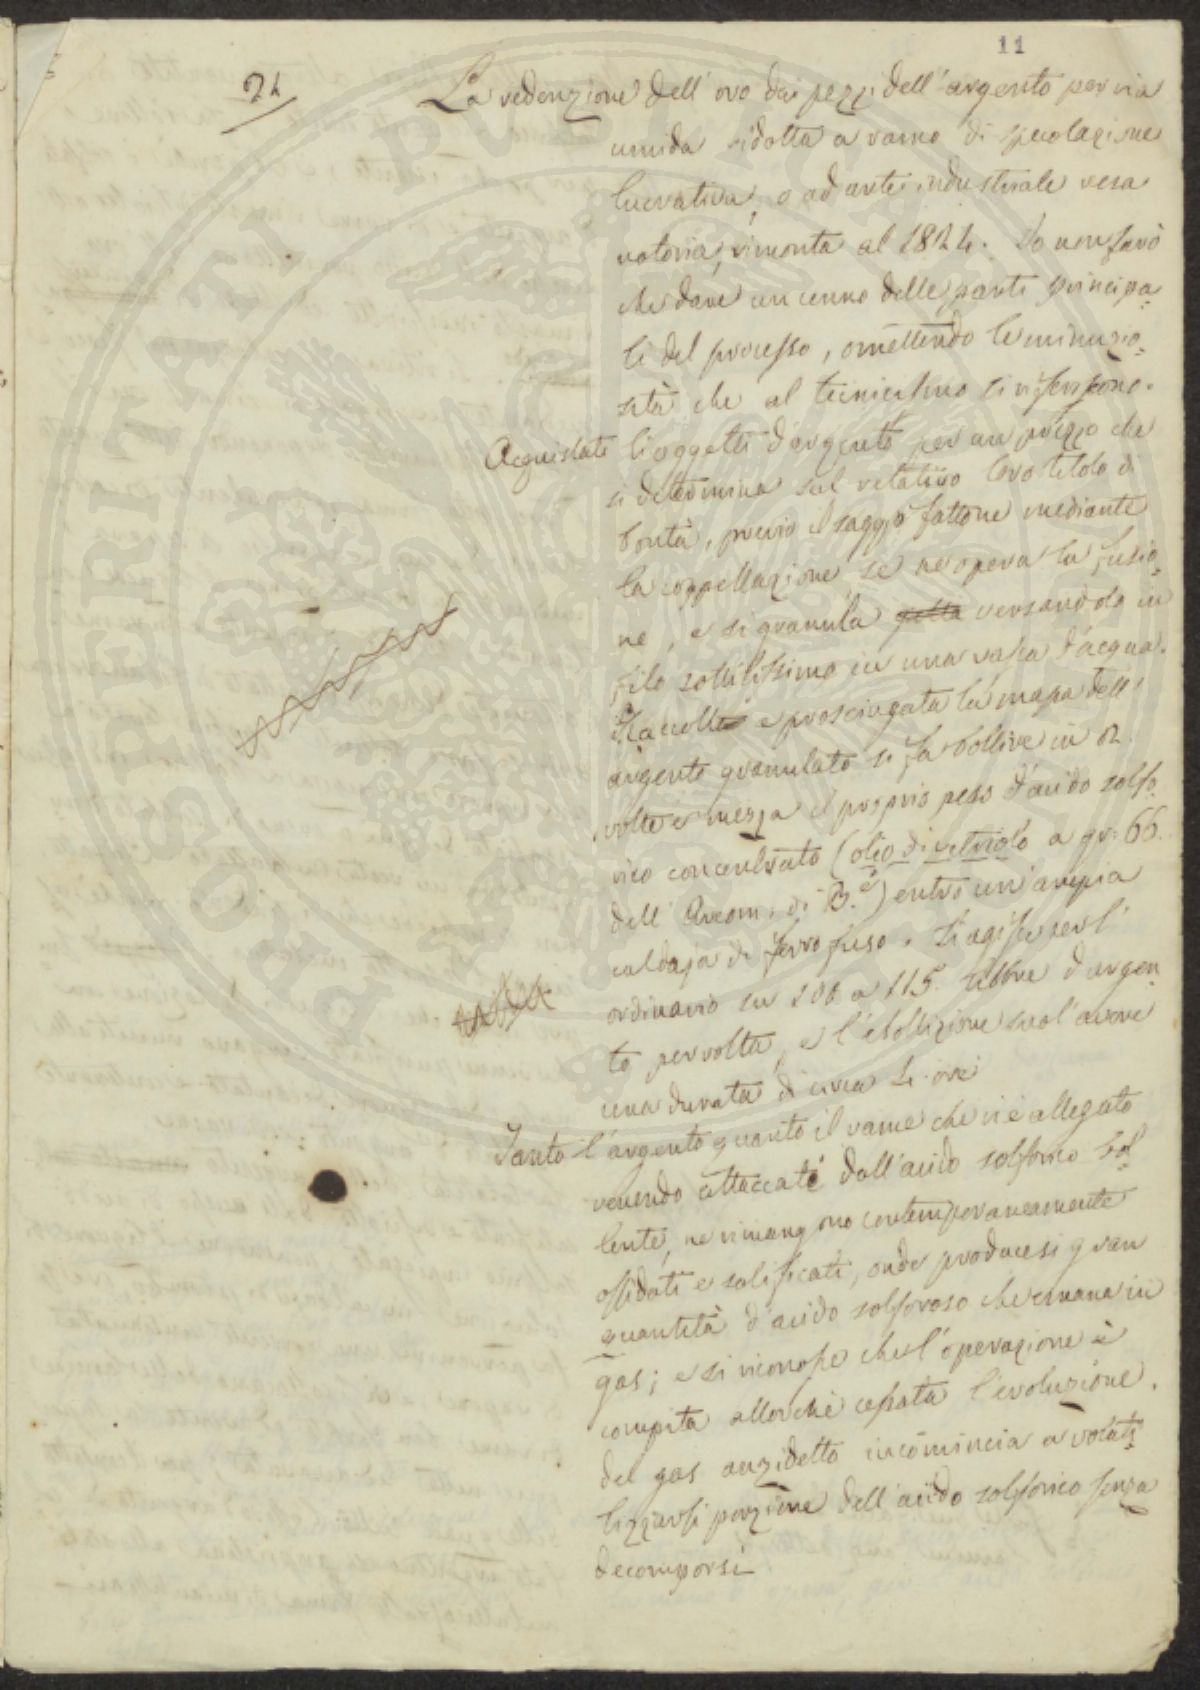 11
24
La redenzione dell'oro dai pezzi dell'argento per via
umida ridotta a ramo di specolazione
lucrativa, e ad arte industriale resa
notoria, rimonta al 1824. Io non farò
che dare un cenno delle parti principa=
li del processo, omettendo le minuzio=
sità che al tecnicismo si riferiscono.
Acquistati li oggetti d'argento per un prezzo che
si determina sul relativo loro titolo di
bontà, previo il saggio fattone mediante
la coppellazione se ne opera la fusio=
ne, e si granula getta versandola in
filo sottilissimo in una vasca d'acqua.
Raccolta e prosciugata la massa dell'
argento granulato si fa bollire in 2
volte e mezza il proprio peso d'acido solfo=
rico concentrato (olio di vetriolo a gr: 66.
dell'Areom: di B.é) entro un'ampia
caldaja di ferro fuso. Si agisce per l'
ordinario su 100 a 115. libbre d'argen=
to per volta, e l'ebollizione suol'avere
una durata di circa 4. ore
Tanto l'argento quanto il rame che vi è allegato
venendo attaccati dall'acido solforico bol=
lente, ne rimangono contemporaneamente
ossidati e salificati, onde producesi gran
quantità d'acido solforoso che emana in
gas; e si riconosce che l'operazione è
compita allorchè cessata l'evoluzione
del gas anzidetto incomincia a volati=
lizzarsi porzione dell'acido solforico senza
decomporsi
PROSPERITATI PUBLICAE